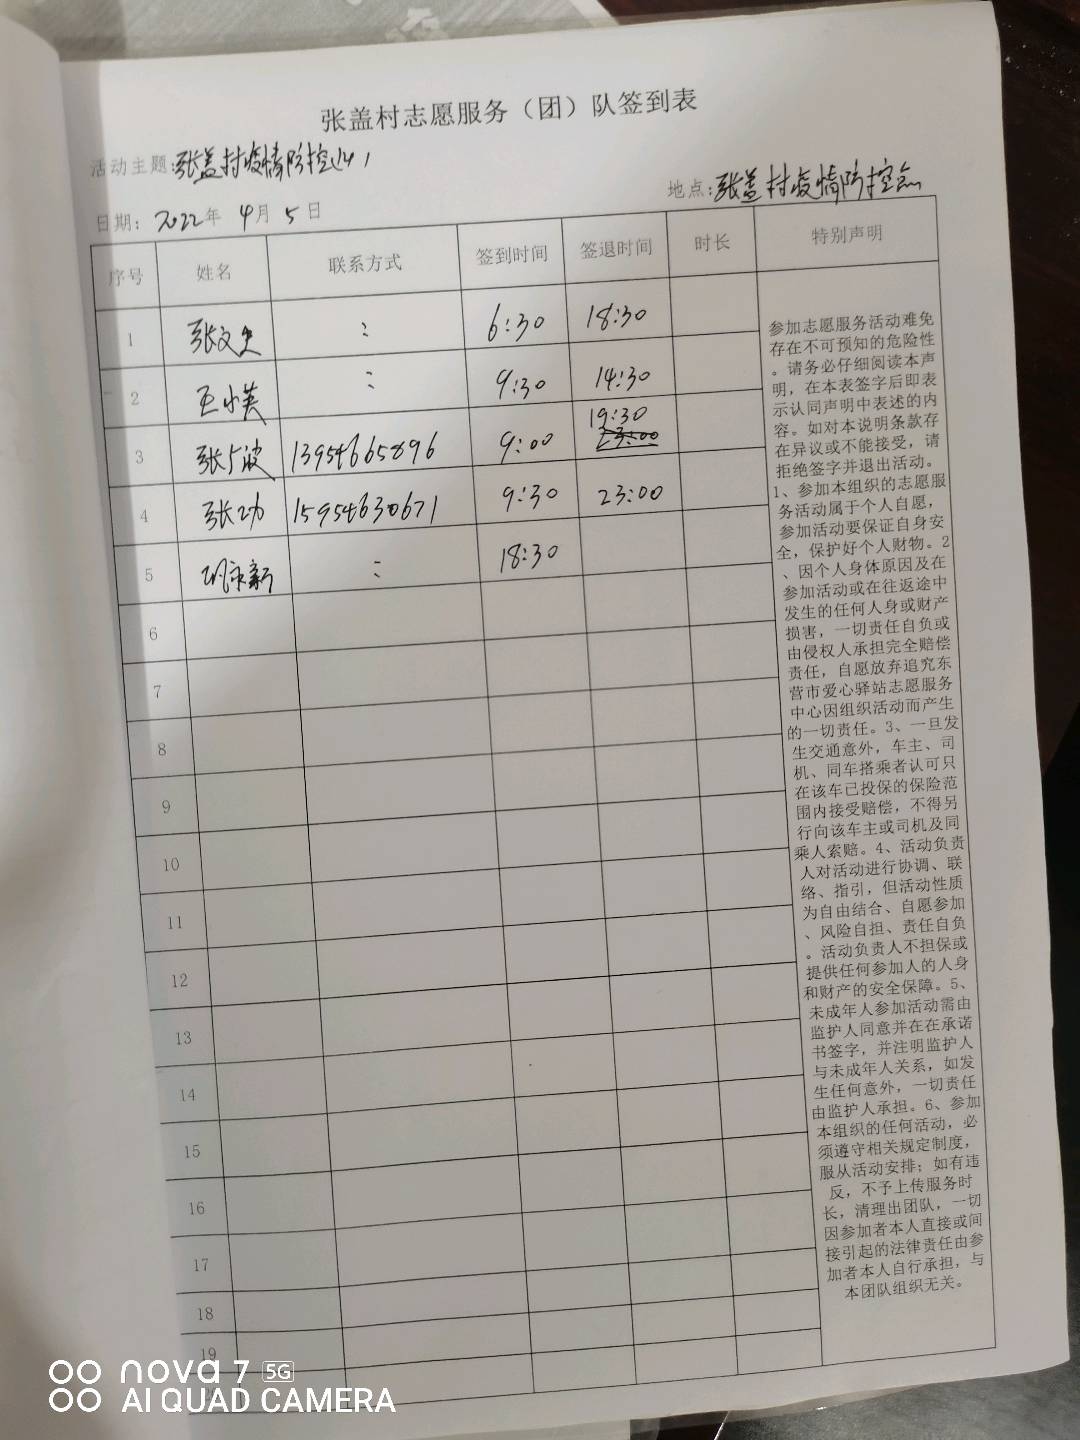 张盖村志愿服务（团）队签到表
活动主题:张盖村疫情防控
地点:张盖村疫情防控点
日期: 2022年 4月 5日
序号 姓名 联系方式 签到时间 签退时间 时长 特别声明
1 张文史 : 6:30 18:30
2 王小美 : 9:30 14:30
19:30
3 张广波 13954665896 9:00 23:00
4 张功 15954630671 9:30 23:00
5 永新 : 18:30
6
7
8
9
10
11
12
13
14
15
16
17
18
19
参加志愿服务活动难免
存在不可预知的危险性
。请务必仔细阅读本声
明，在本表签字后即表
示认同声明中表述的内
容。如对本说明条款存
在异议或不能接受，请
拒绝签字并退出活动。
1、参加本组织的志愿服
务活动属于个人自愿，
参加活动要保证自身安
全，保护好个人财物。2
、因个人身体原因及在
参加活动或在往返途中
发生的任何人身或财产
损害，一切责任自负或
由侵权人承担完全赔偿
责任，自愿放弃追究东
营市爱心驿站志愿服务
中心因组织活动而产生
的一切责任。3、一旦发
生交通意外，车主、司
机、同车搭乘者认可只
在该车已投保的保险范
围内接受赔偿，不得另
行向该车主或司机及同
乘人索赔。4、活动负责
人对活动进行协调、联
络、指引，但活动性质
为自由结合、自愿参加
、风险自担、责任自负
。活动负责人不担保或
提供任何参加人的人身
和财产的安全保障。5、
未成年人参加活动需由
监护人同意并在在承诺
书签字，并注明监护人
与未成年人关系，如发
生任何意外，一切责任
由监护人承担。6、参加
本组织的任何活动，必
须遵守相关规定制度，
服从活动安排；如有违
反，不予上传服务时
长，清理出团队，一切
因参加者本人直接或间
接引起的法律责任由参
加者本人自行承担，与
本团队组织无关。
nova 7 5G
AI QUAD CAMERA